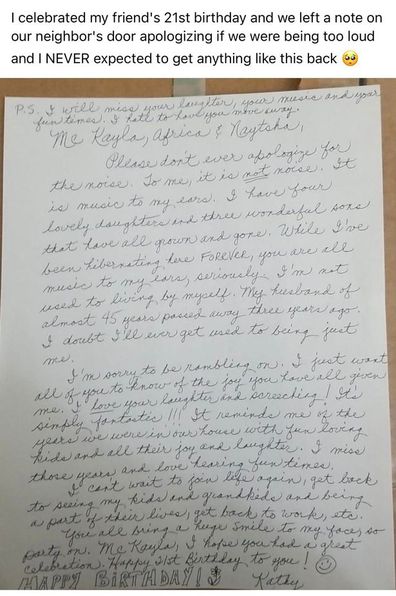 I celebrated my friend's 21st birthday and we left a note on
our neighbor's door apologizing if we were being too loud
and I NEVER expected to get anything like this back 🥺
P.S. I will miss your laughter, your music and your
fun times. I hate to have you move away.
Mc Kayla, Africa & Naytsha,
Please don't ever apologize for
the noise. To me, it is not noise. It
is music to my ears. I have four
lovely daughters and three wonderful sons
that have all grown and gone. While I've
been hibernating here FOREVER, you are all
music to my ears, seriously. I'm not
used to living by myself. My husband of
almost 45 years passed away three years ago.
I doubt I'll ever get used to being just
me.
I'm sorry to be rambling on. I just want
all of you to know of the joy you have all given
me. I love your laughter and screeching! It's
simply fantastic!!! It reminds me of the
years we were in our house with fun loving
kids and all their joy and laughter. I miss
those years and love hearing fun times.
I can't wait to join life again, get back
to seeing my kids and grandkids and being
a part of their lives, get back to work, etc.
You all bring a huge smile to my face, so
party on. Mc Kayla, I hope you had a great
celebration. Happy 21st Birthday to you!
HAPPY BIRTHDAY! Kathy